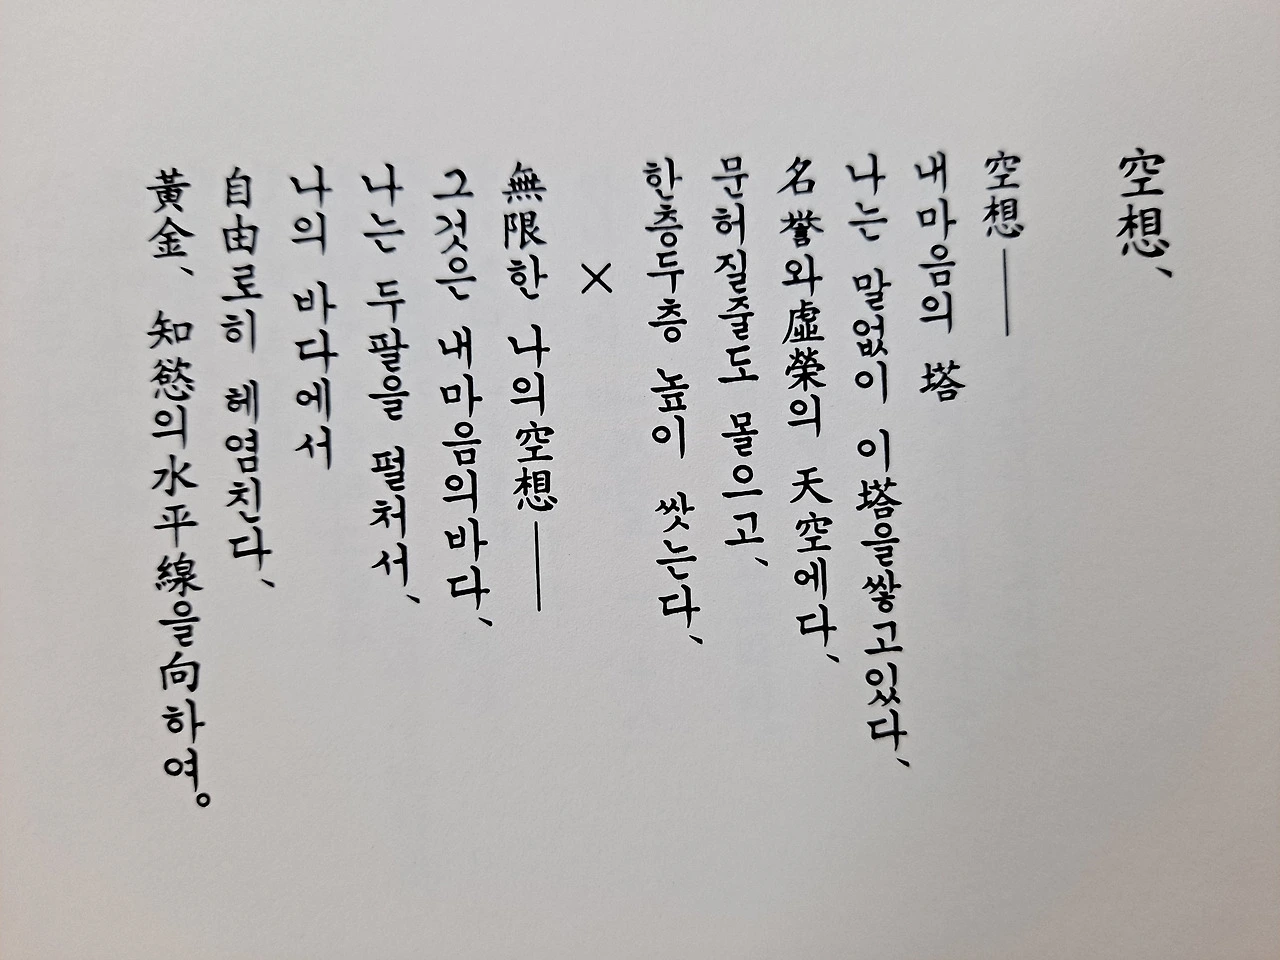 空想、
空想——
내 마음의 塔
나는 말없이 이塔을쌓고있다、
名誉와虛榮의 天空에다、
문허질줄도 몰으고、
한층두층 높이 쌋는다、
×
無限한 나의空想——
그것은 내마음의바다、
나는 두팔을 펄처서、
나의 바다에서
自由로히 헤염친다、
黃金、知慾의水平線을向하여。